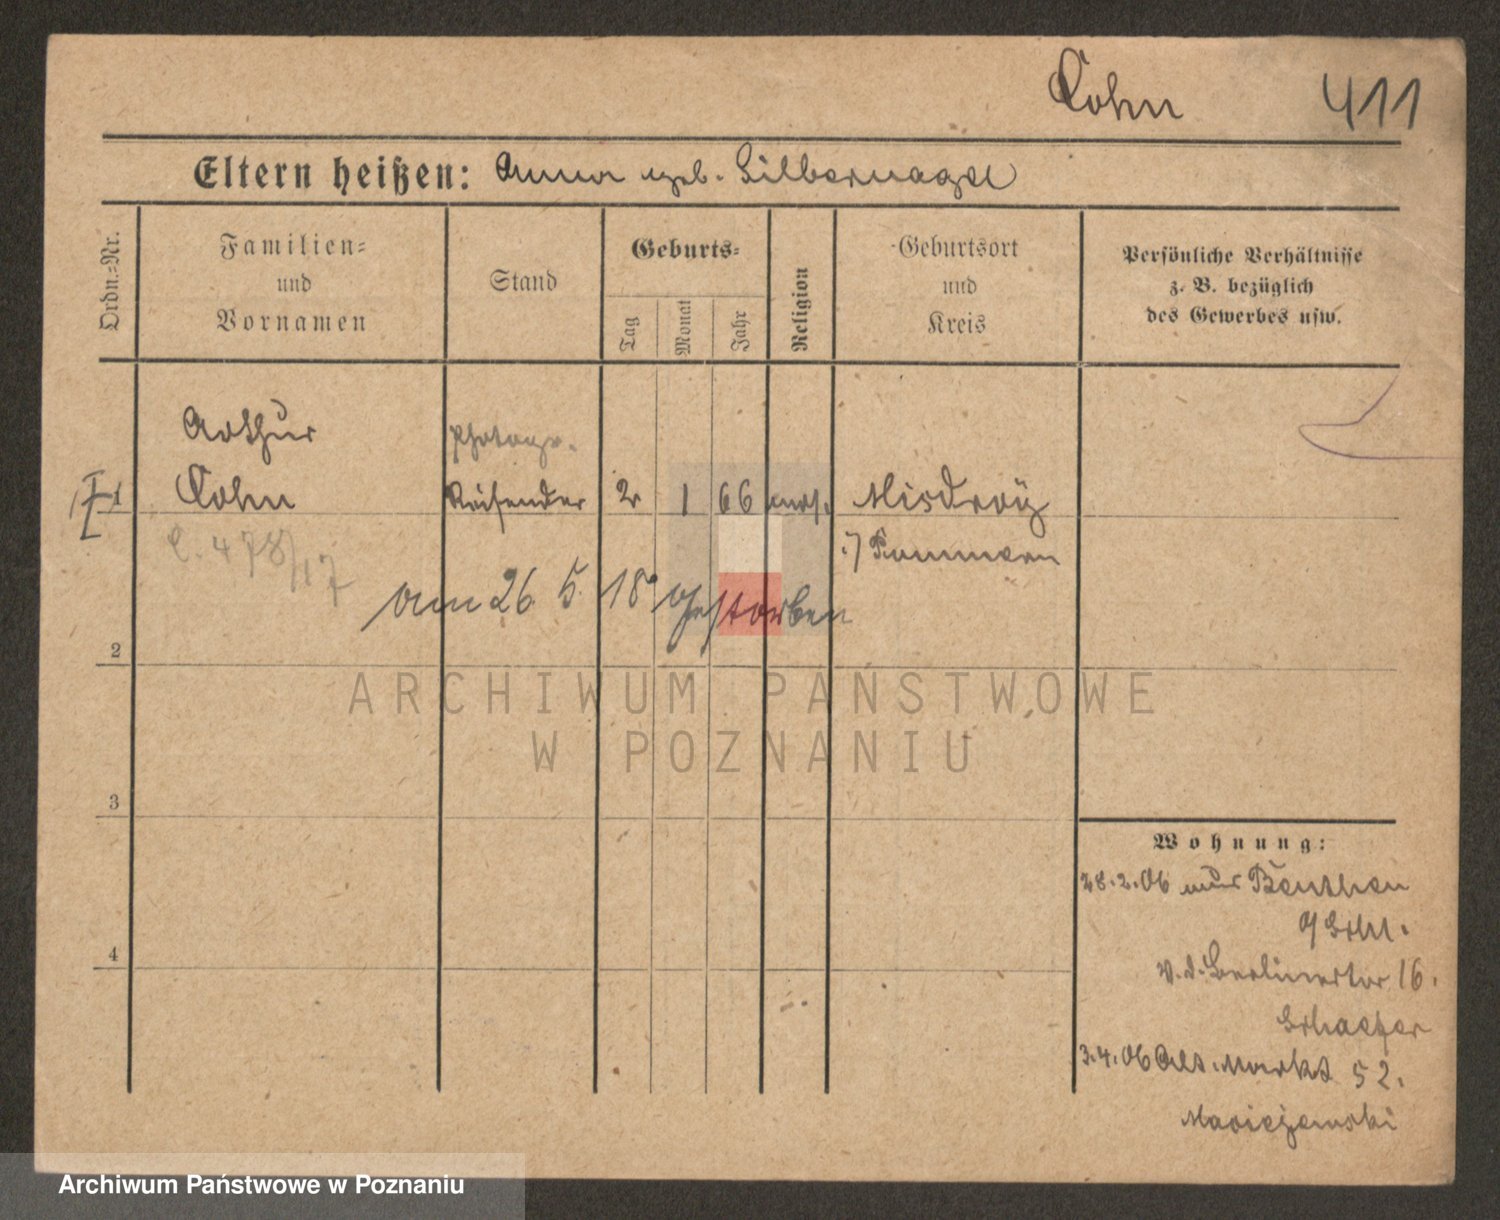 Cohn 411
Eltern heißen: Anna geb. Silbernagel
Ordn.=Nr.
Familien=
und
Vornamen
Stand
Geburts=
Tag
Monat
Jahr
Religion
Geburtsort
und
Kreis
Persönliche Verhältnisse
z. B. bezüglich
des Gewerbes usw.
Arthur photogr.
1 Cohn Reisender 2 1 66 mos. Misdroy
C. 478/17 i/ Pommern
am 26. 5. 18 gestorben
2
ARCHIWUM PAŃSTWOWE
W POZNANIU
3
Wohnung:
28.2.06 aus Beuthen
O/Schl.
v. d. Berlinertor 16.
4
Schaefer
3.4.06 Alt. Markt 52.
Maciejewski
Archiwum Państwowe w Poznaniu